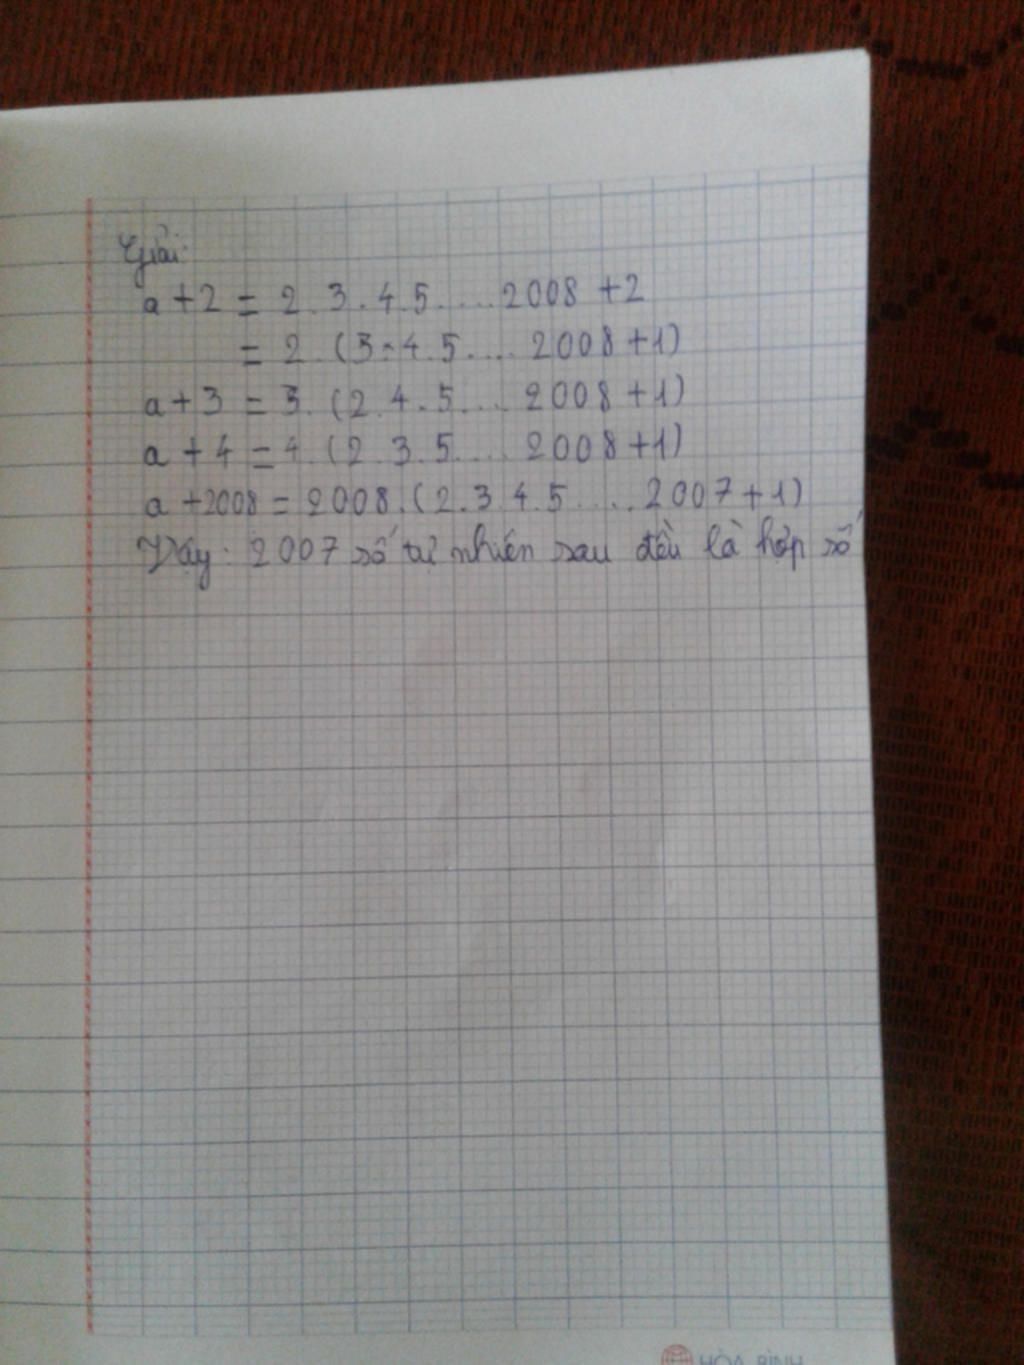 Giải:
a + 2 = 2.3.4.5....2008 + 2
= 2.(3.4.5....2008 + 1)
a + 3 = 3.(2.4.5...2008 + 1)
a + 4 = 4.(2.3.5....2008 + 1)
a + 2008 = 2008.(2.3.4.5....2007 + 1)
Vậy: 2007 số tự nhiên sau đều là hợp số
HÒA BÌNH